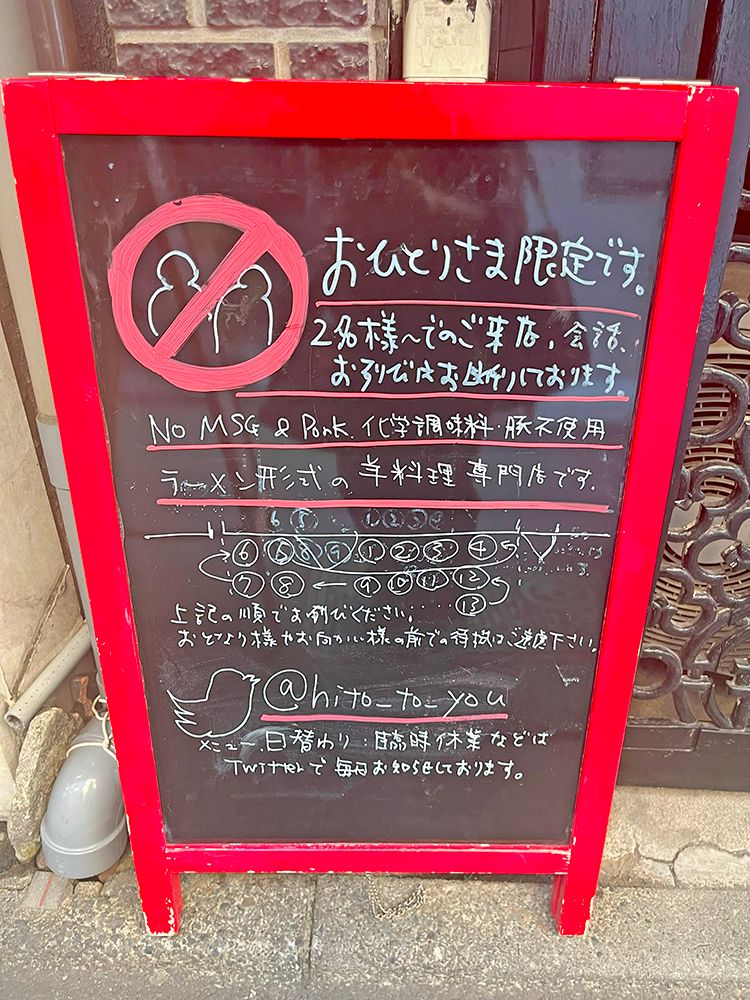 おひとりさま限定です。
2名様〜でのご来店、会話、
お列びはお断りしております。
No MSG & Pork. 化学調味料・豚不使用
ラーメン形式の羊料理専門店です.
⑥ ⑤ ① ② ③ ④
⑥ ⑤ ⑧ ⑨ ① ② ③ ④
⑦ ⑧ ← ⑨ ⑩ ⑪ ⑫
⑬
上記の順でお列びください.
おとなり様やお向かい様の前での待機はご遠慮下さい.
@hito_to_you
メニュー、日替わり：臨時休業などは
Twitterで毎日お知らせしております。